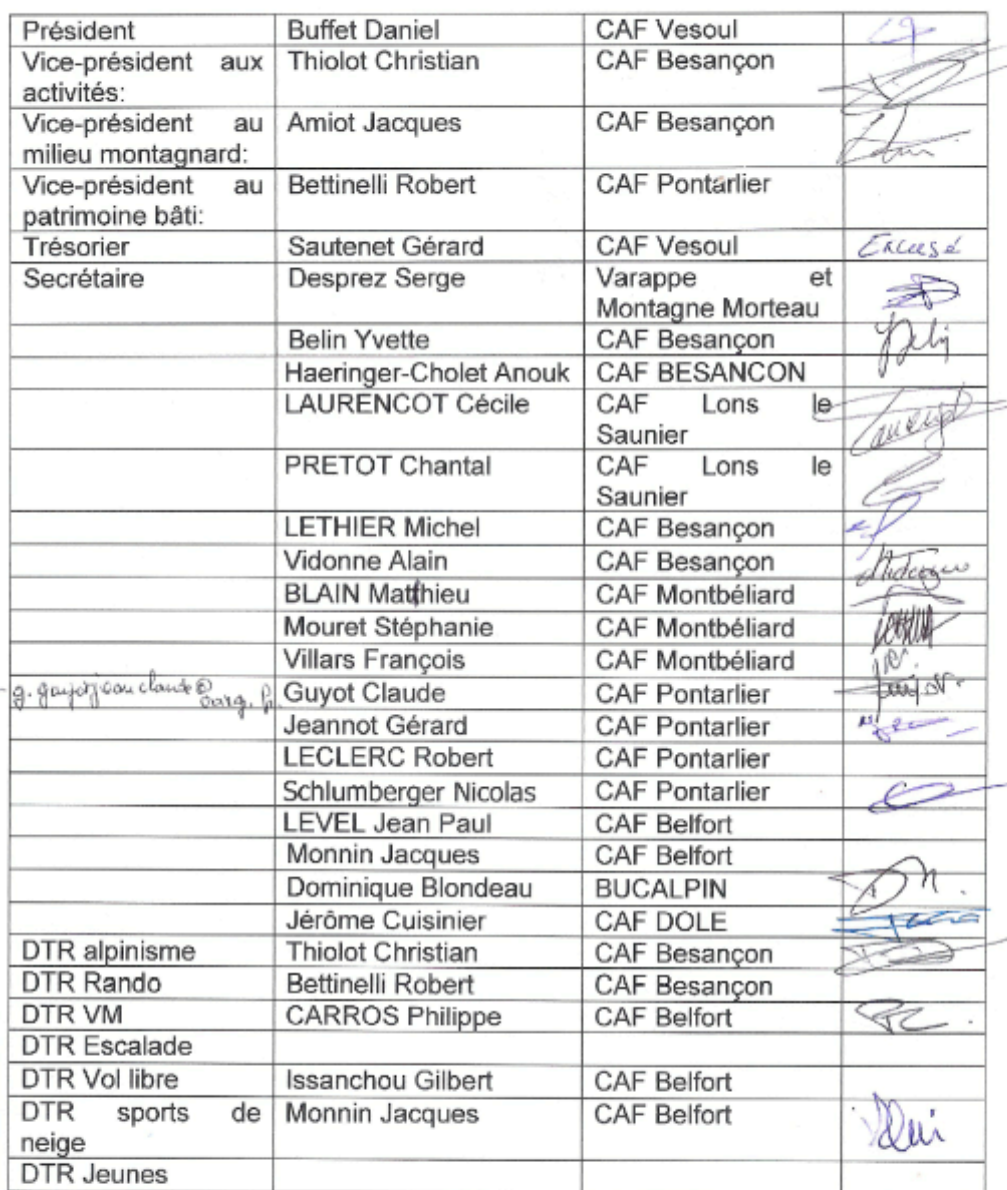 Président Buffet Daniel CAF Vesoul
Vice-président aux Thiolot Christian CAF Besançon
activités:
Vice-président au Amiot Jacques CAF Besançon
milieu montagnard:
Vice-président au Bettinelli Robert CAF Pontarlier
patrimoine bâti:
Trésorier Sautenet Gérard CAF Vesoul Excusé
Secrétaire Desprez Serge Varappe et
Montagne Morteau
Belin Yvette CAF Besançon
Haeringer-Cholet Anouk CAF BESANCON
LAURENCOT Cécile CAF Lons le
Saunier
PRETOT Chantal CAF Lons le
Saunier
LETHIER Michel CAF Besançon
Vidonne Alain CAF Besançon
BLAIN Matthieu CAF Montbéliard
Mouret Stéphanie CAF Montbéliard
Villars François CAF Montbéliard
Guyot Claude CAF Pontarlier
Jeannot Gérard CAF Pontarlier
LECLERC Robert CAF Pontarlier
Schlumberger Nicolas CAF Pontarlier
LEVEL Jean Paul CAF Belfort
Monnin Jacques CAF Belfort
Dominique Blondeau BUCALPIN
Jérôme Cuisinier CAF DOLE
DTR alpinisme Thiolot Christian CAF Besançon
DTR Rando Bettinelli Robert CAF Besançon
DTR VM CARROS Philippe CAF Belfort
DTR Escalade
DTR Vol libre Issanchou Gilbert CAF Belfort
DTR sports de Monnin Jacques CAF Belfort
neige
DTR Jeunes